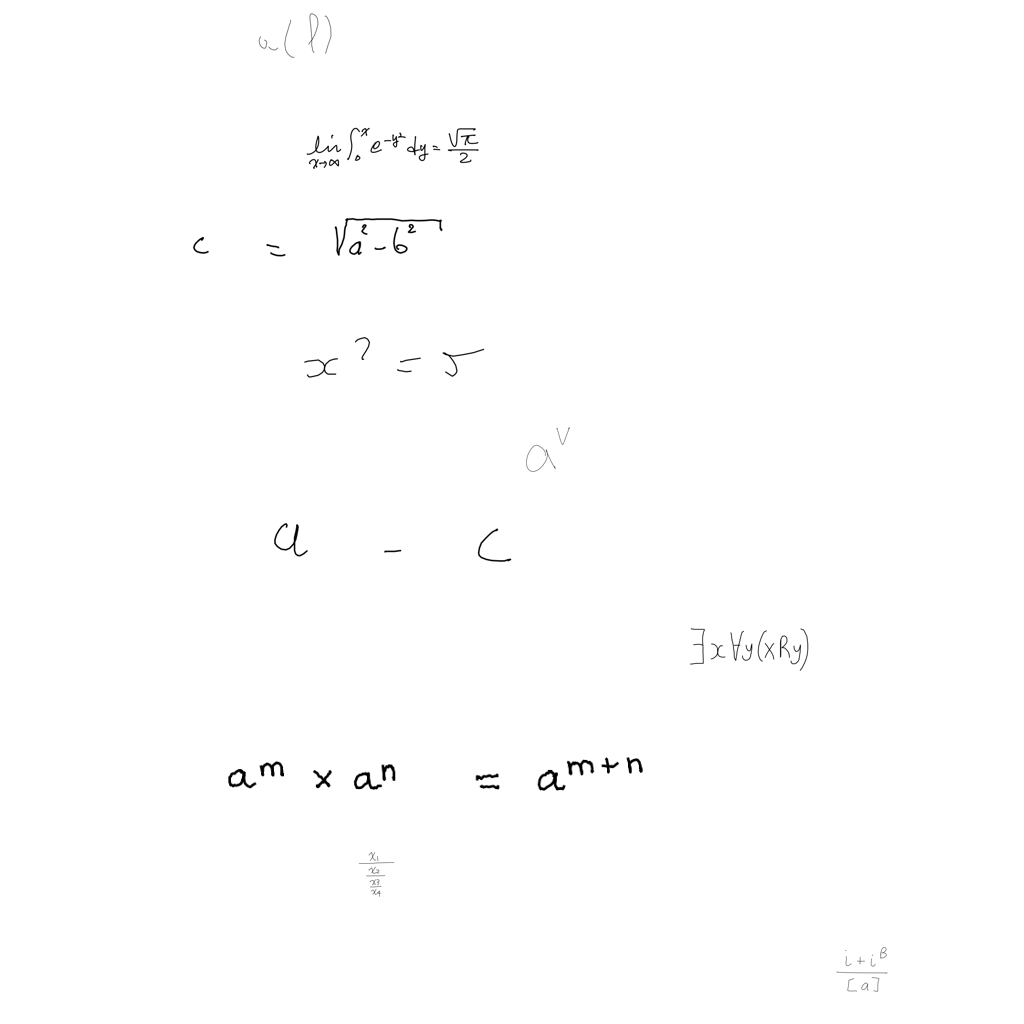 a(l)
\lim_{x \to \infty} \int_0^x e^{-y^2} dy = \frac{\sqrt{\pi}}{2}
c = \sqrt{a^2 - b^2}
x^? = 5
a^v
a - c
∃x∀y(xRy)
a^m × a^n = a^{m+n}
\frac{x_1}{\frac{x_2}{\frac{x_3}{x_4}}}
\frac{i + i^B}{[a]}